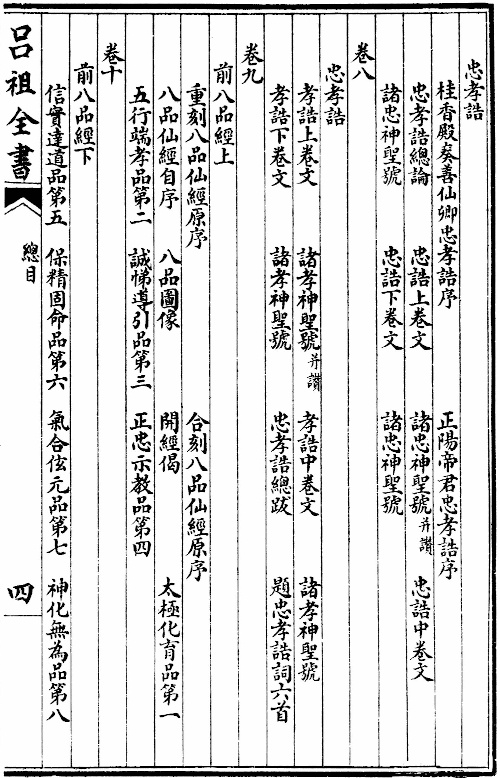 忠孝誥
桂香殿奏善仙卿忠孝誥序 正陽帝君忠孝誥序
忠孝誥總論 忠誥上卷文 諸忠神聖號并讚 忠誥中卷文
諸忠神聖號 忠誥下卷文 諸忠神聖號
卷八
忠孝誥
孝誥上卷文 諸孝神聖號并讚 孝誥中卷文 諸孝神聖號
孝誥下卷文 諸孝神聖號 忠孝誥總跋 題忠孝誥詞六首
卷九
前八品經上
重刻八品仙經原序 合刻八品仙經原序
八品仙經自序 八品圖像 開經偈 太極化育品第一
五行端孝品第二 誠悌導引品第三 正忠示教品第四
卷十
前八品經下
信實達道品第五 保精固命品第六 氣合弦元品第七 神化無為品第八
呂祖全書 總目 四